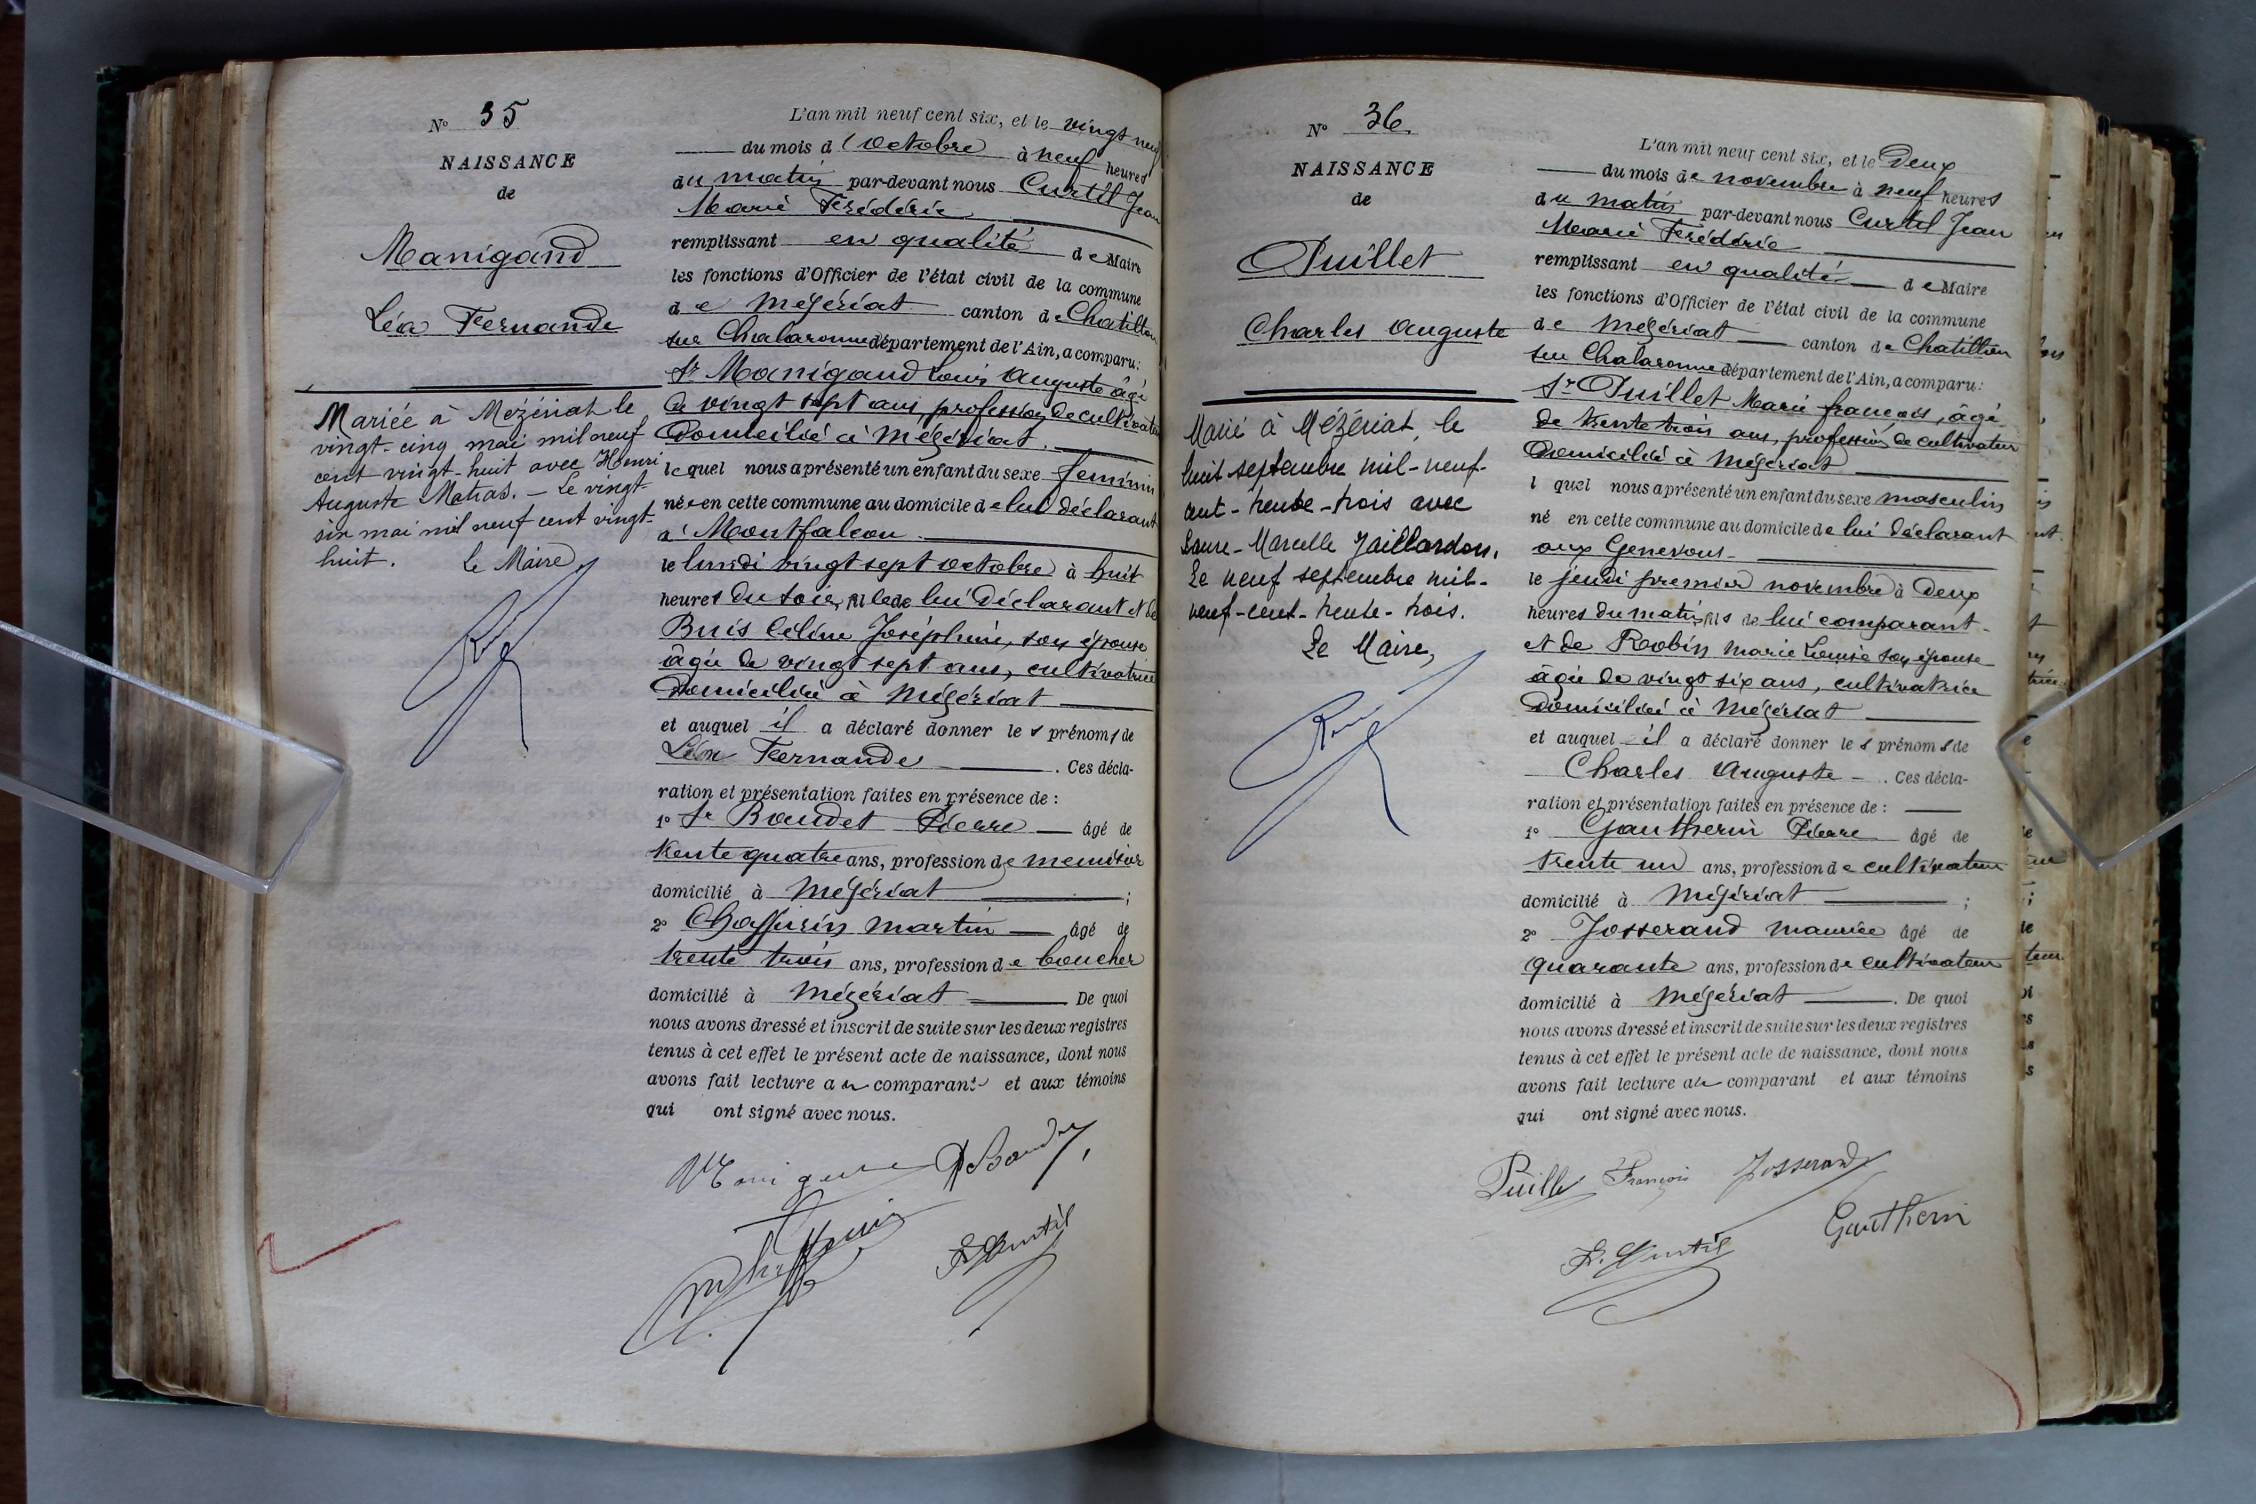 N° 35
NAISSANCE
de
Manigand
Léa Fernande
Mariée à Mézériat le
vingt-cinq mai mil neuf
cent vingt-huit avec Henri
Auguste Matras. — Le vingt-
six mai mil neuf cent vingt-
huit. Le Maire
L'an mil neuf cent six, et le vingt neuf
du mois d'octobre à neuf heures
du matin par-devant nous Curtil Jean
Marie Frédéric
remplissant en qualité de Maire
les fonctions d'Officier de l'état civil de la commune
de Mézériat canton de Chatillon
sur Chalaronne département de l'Ain, a comparu :
Sr Manigand Louis Auguste âgé
de vingt sept ans, profession de cultivateur
domicilié à Mézériat.
lequel nous a présenté un enfant du sexe féminin
née en cette commune au domicile de lui déclarant
à Montfalcon
le lundi vingt sept octobre à huit
heures du soir, fille de lui déclarant et de
Buis Céline Joséphine, son épouse
âgée de vingt sept ans, cultivatrice
domiciliée à Mézériat
et auquel il a déclaré donner les prénoms de
Léa Fernande . Ces décla-
ration et présentation faites en présence de :
1° Sr Baudet Pierre âgé de
trente quatre ans, profession de menuisier
domicilié à Mézériat ;
2° Chaffurin Martin âgé de
trente trois ans, profession de boucher
domicilié à Mézériat De quoi
nous avons dressé et inscrit de suite sur les deux registres
tenus à cet effet le présent acte de naissance, dont nous
avons fait lecture au comparant et aux témoins
qui ont signé avec nous.
Manigand P Baudet
M Chaffurin F. Curtil
N° 36.
NAISSANCE
de
Puillet
Charles Auguste
Marié à Mézériat, le
huit septembre mil-neuf-
cent-trente-trois avec
Laure-Marcelle Jaillardon.
Le neuf septembre mil-
neuf-cent-trente-trois.
Le Maire,
L'an mil neuf cent six, et le deux
du mois de novembre à neuf heures
du matin par-devant nous Curtil Jean
Marie Frédéric
remplissant en qualité de Maire
les fonctions d'Officier de l'état civil de la commune
de Mézériat canton de Chatillon
sur Chalaronne département de l'Ain, a comparu :
Sr Puillet Marie françois, âgé
de trente trois ans, profession de cultivateur
domicilié à Mézériat
l quel nous a présenté un enfant du sexe masculin
né en cette commune au domicile de lui déclarant
aux Genevous
le jeudi premier novembre à deux
heures du matin, fils de lui comparant
et de Robin Marie Louise son épouse
âgée de vingt six ans, cultivatrice
domiciliée à Mézériat
et auquel il a déclaré donner les prénoms de
Charles Auguste . Ces décla-
ration et présentation faites en présence de :
1° Gautherin Pierre âgé de
trente un ans, profession de cultivateur
domicilié à Mézériat ;
2° Josserand Maurice âgé de
quarante ans, profession de cultivateur
domicilié à Mézériat . De quoi
nous avons dressé et inscrit de suite sur les deux registres
tenus à cet effet le présent acte de naissance, dont nous
avons fait lecture au comparant et aux témoins
qui ont signé avec nous.
Puillet François Josserand
F. Curtil Gautherin